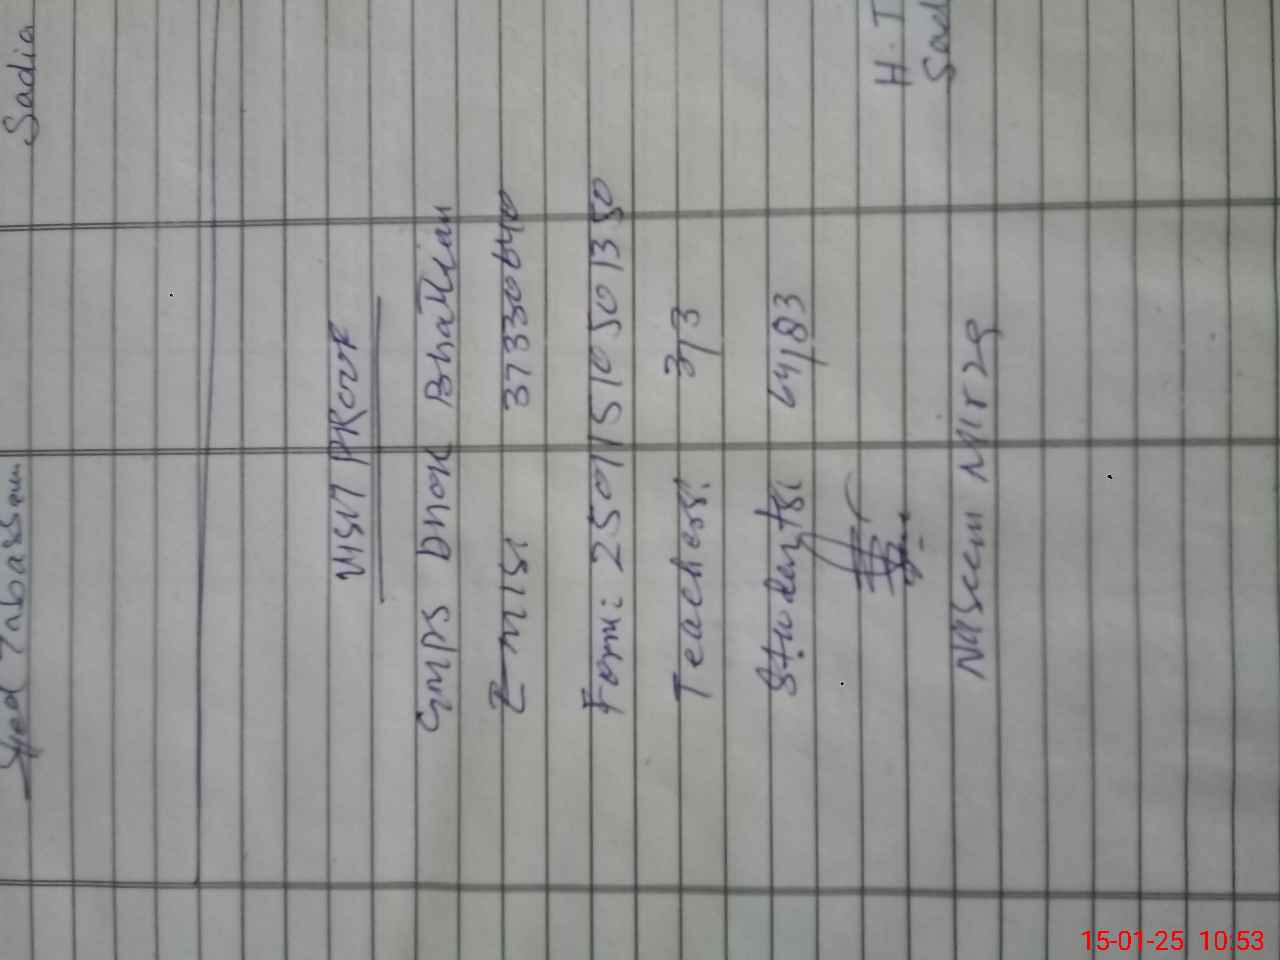 Syed Tabassum
Sadia
Visit Proof
GMPS Dhok Bhattian
Emis: 37330640
Form: 25011510501350
Teachers: 3/3
Students: 64/83
Naseem Mirza
H.T
Sad
15-01-25 10:53